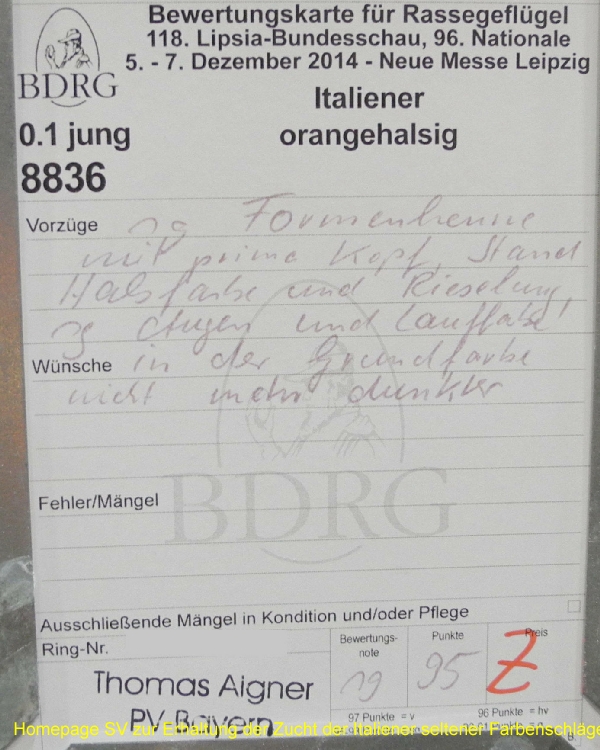 Bewertungskarte für Rassegeflügel
118. Lipsia-Bundesschau, 96. Nationale
5. - 7. Dezember 2014 - Neue Messe Leipzig
BDRG
Italiener
0.1 jung
orangehalsig
8836
Vorzüge sg Formenhenne
mit prima Kopf, Stand
Halsfarbe und Rieselung,
sg Augen und Lauffarbe!
Wünsche in der Grundfarbe
nicht mehr dunkler
BDRG
Fehler/Mängel
Ausschließende Mängel in Kondition und/oder Pflege
Ring-Nr.
Bewertungs-
note
Punkte
Preis
sg
95
Z
Thomas Aigner
PV Bayern
97 Punkte = v
96 Punkte = hv
Homepage SV zur Erhaltung der Zucht der Italiener seltener Farbenschläge